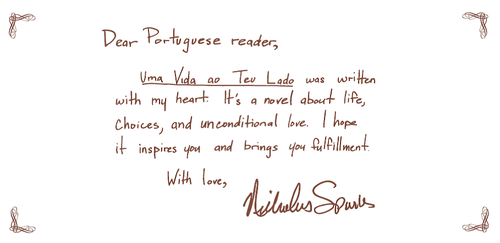 Dear Portuguese reader,
Uma Vida ao Teu Lado was written
with my heart. It's a novel about life,
Choices, and unconditional love. I hope
it inspires you and brings you fulfillment.
With love,
Nicholas Sparks